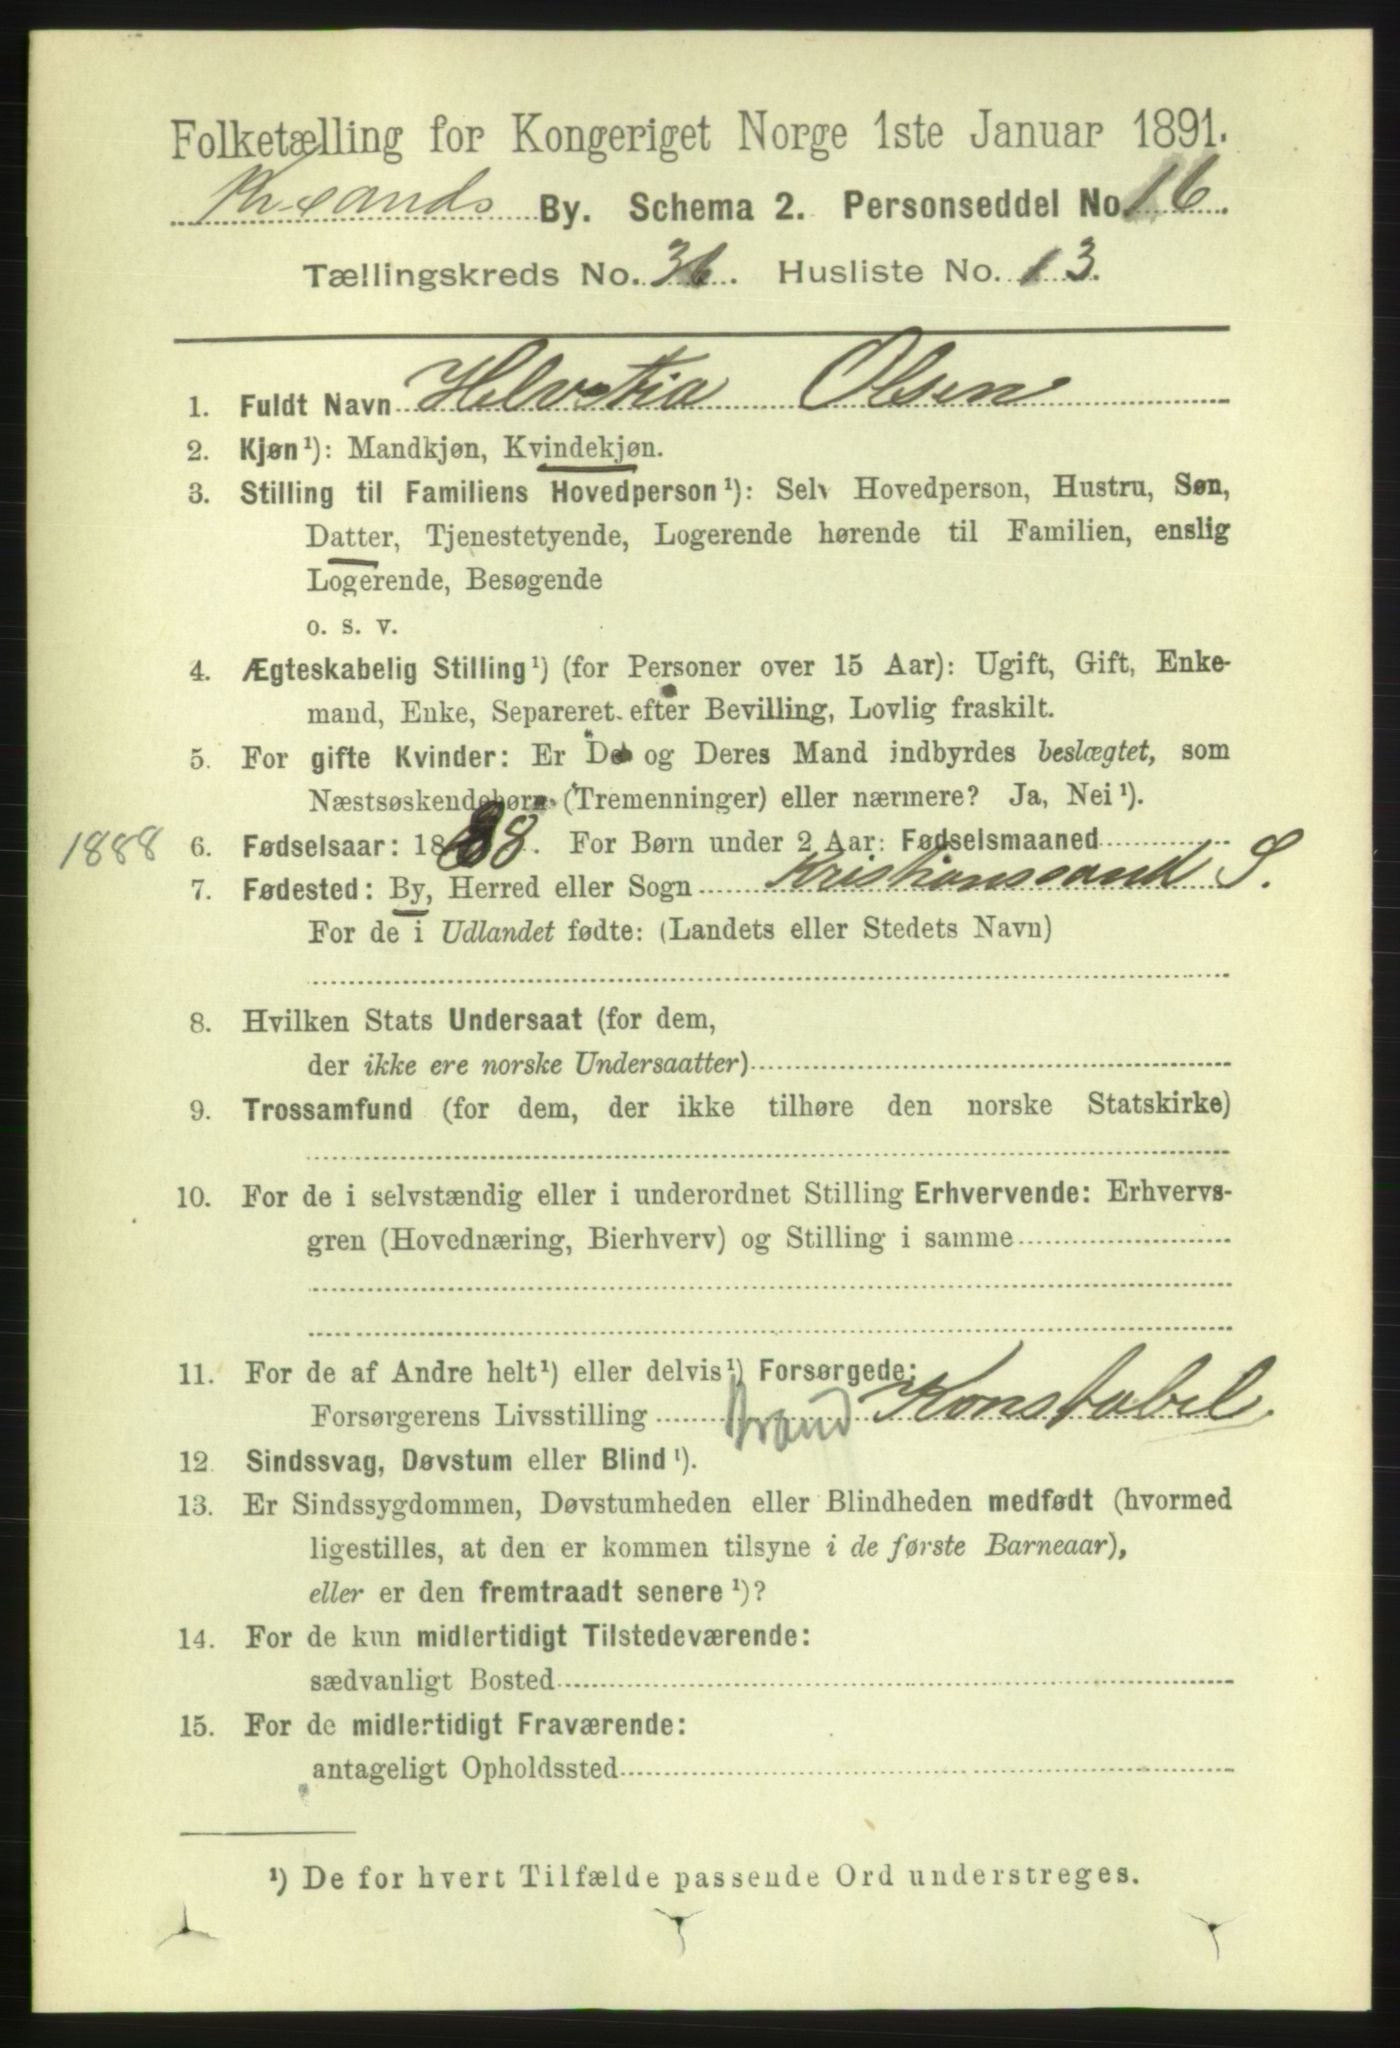 Folketælling for Kongeriget Norge 1ste Januar 1891.
Krsands By. Schema 2. Personseddel No 16.
Tællingskreds No. 36. Husliste No. 13.
1. Fuldt Navn Helvetia Olsen
2. Kjøn¹): Mandkjøn, Kvindekjøn.
3. Stilling til Familiens Hovedperson¹): Selv Hovedperson, Hustru, Søn,
Datter, Tjenestetyende, Logerende hørende til Familien, enslig
Logerende, Besøgende
o. s. v.
4. Ægteskabelig Stilling¹) (for Personer over 15 Aar): Ugift, Gift, Enke-
mand, Enke, Separeret efter Bevilling, Lovlig fraskilt.
5. For gifte Kvinder: Er De og Deres Mand indbyrdes beslægtet, som
Næstsøskendebørn (Tremenninger) eller nærmere? Ja, Nei¹).
1888 6. Fødselsaar: 1888. For Børn under 2 Aar: Fødselsmaaned
7. Fødested: By, Herred eller Sogn Kristianssand S.
For de i Udlandet fødte: (Landets eller Stedets Navn)
8. Hvilken Stats Undersaat (for dem,
der ikke ere norske Undersaatter)
9. Trossamfund (for dem, der ikke tilhøre den norske Statskirke)
10. For de i selvstændig eller i underordnet Stilling Erhvervende: Erhvervs-
gren (Hovednæring, Bierhverv) og Stilling i samme
11. For de af Andre helt¹) eller delvis¹) Forsørgede:
Forsørgerens Livsstilling Brand Konstabel.
12. Sindssvag, Døvstum eller Blind¹).
13. Er Sindssygdommen, Døvstumheden eller Blindheden medfødt (hvormed
ligestilles, at den er kommen tilsyne i de første Barneaar),
eller er den fremtraadt senere¹)?
14. For de kun midlertidigt Tilstedeværende:
sædvanligt Bosted
15. For de midlertidigt Fraværende:
antageligt Opholdssted
¹) De for hvert Tilfælde passende Ord understreges.